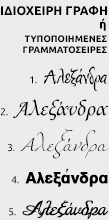 ΙΔΙΟΧΕΙΡΗ ΓΡΑΦΗ
ή
ΤΥΠΟΠΟΙΗΜΕΝΕΣ
ΓΡΑΜΜΑΤΟΣΕΙΡΕΣ
1. Αλεξάνδρα
2. Αλεξάνδρα
3. Αλεξάνδρα
4. Αλεξάνδρα
5. Αλεξάνδρα